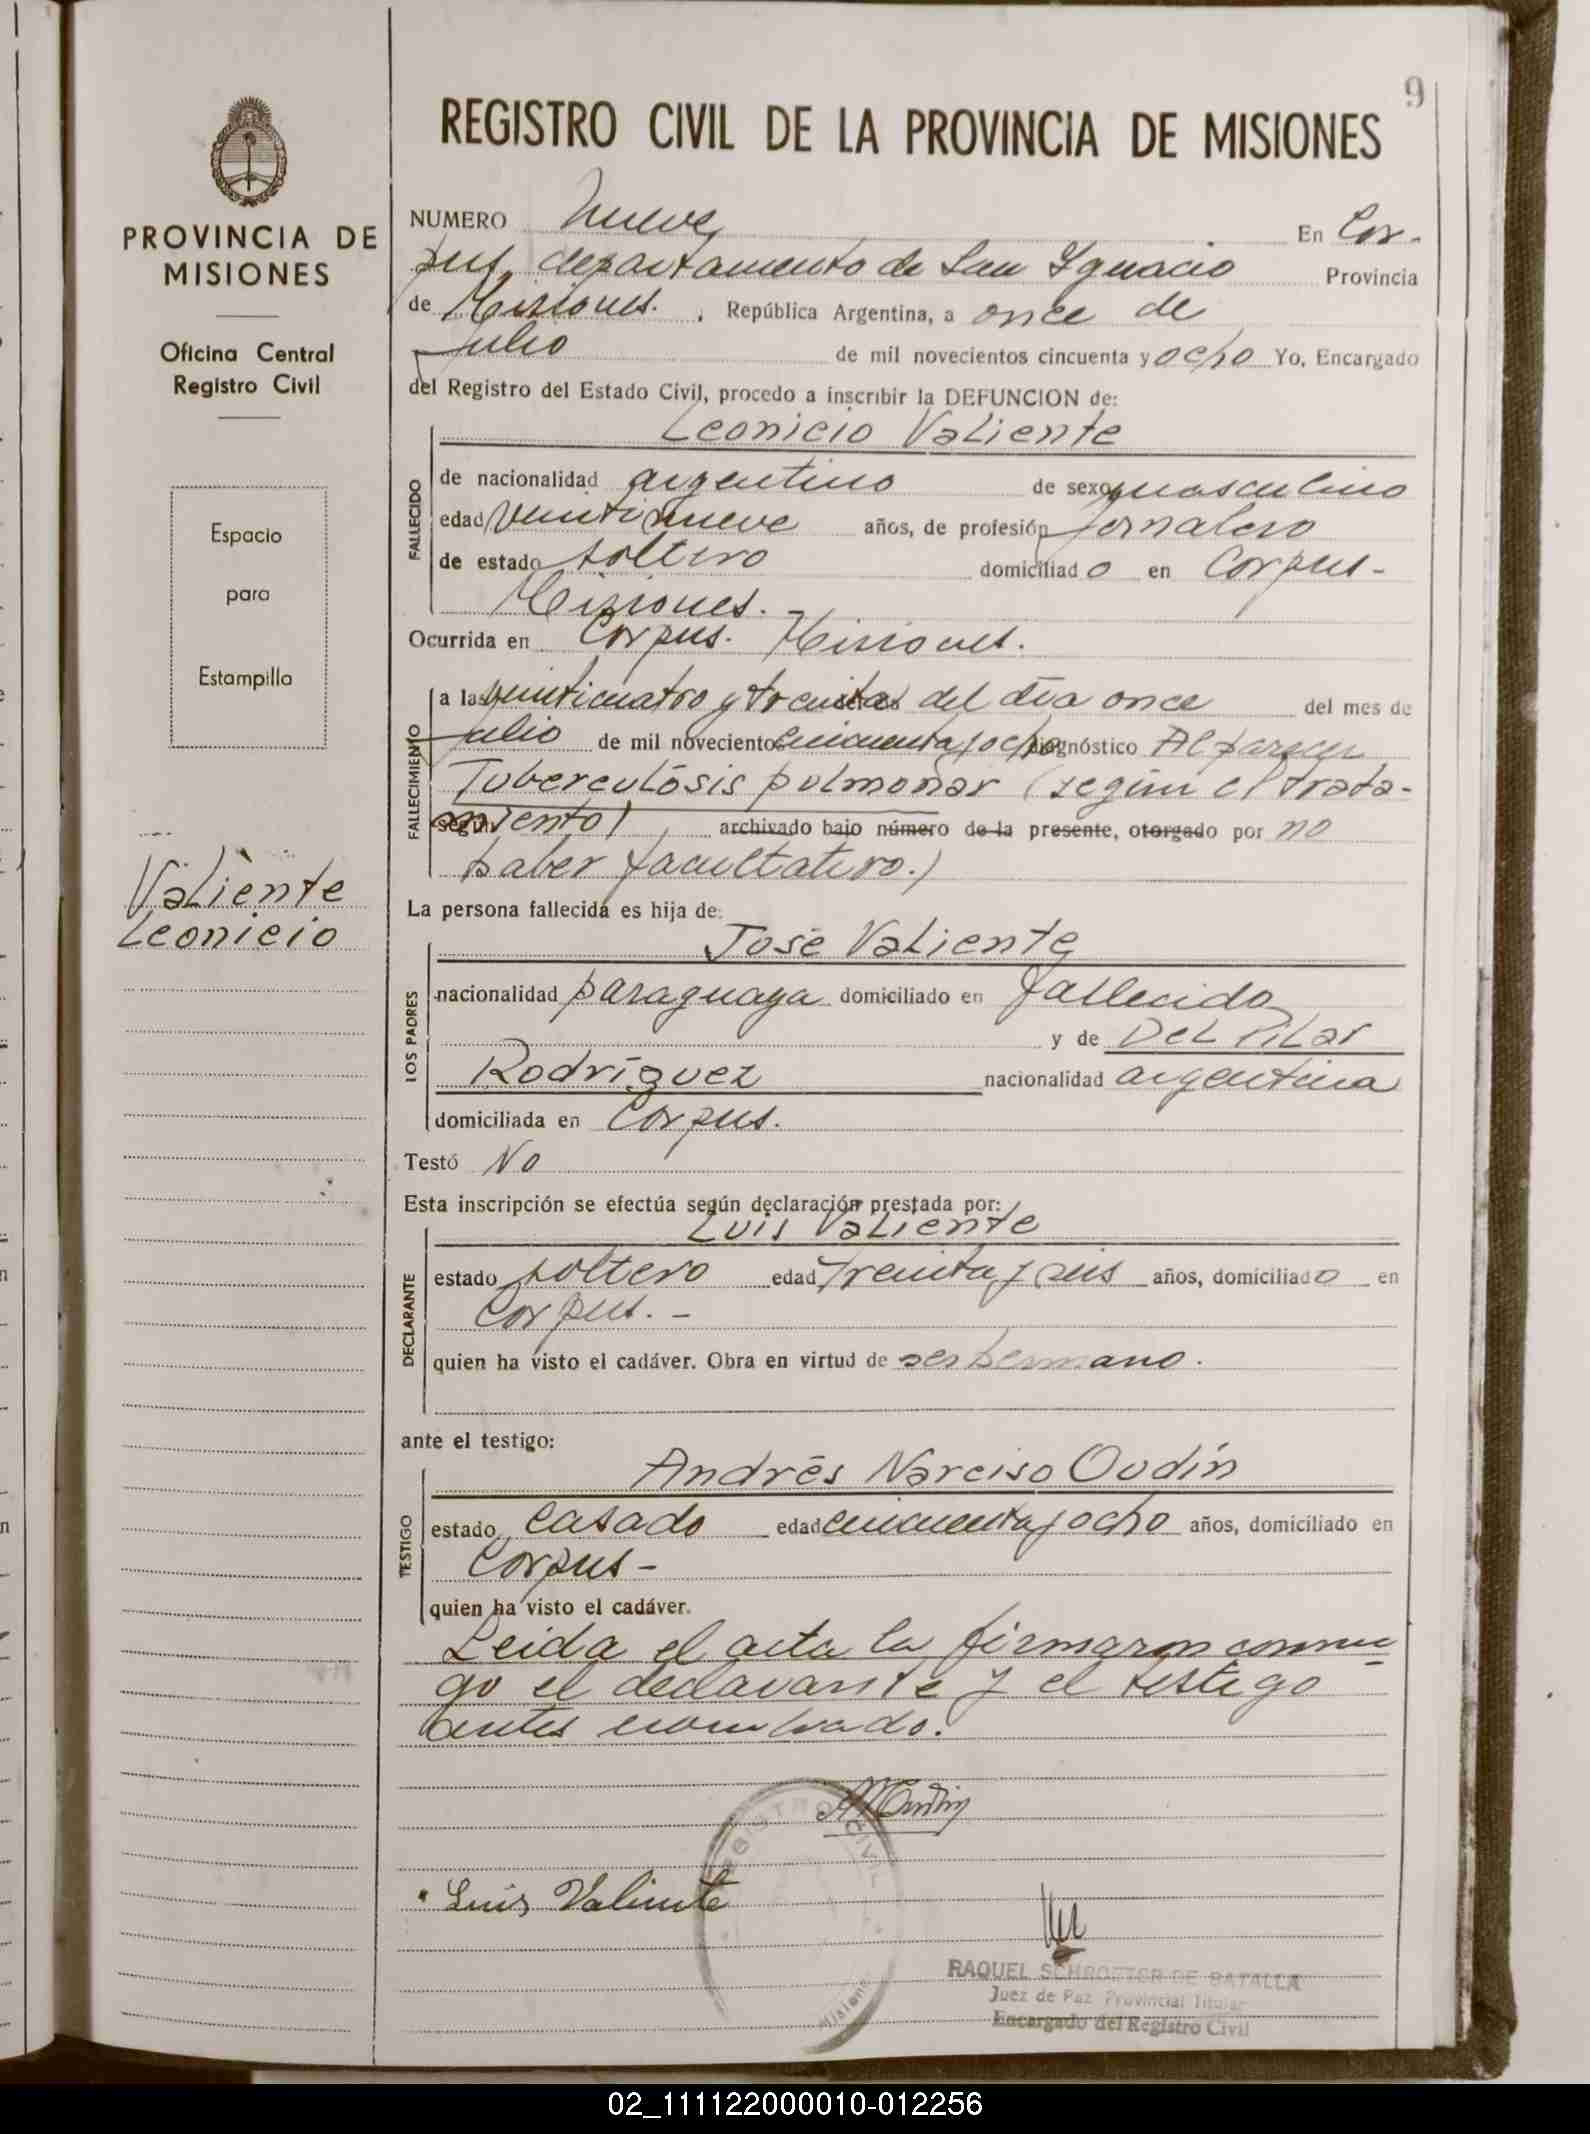 9
REGISTRO CIVIL DE LA PROVINCIA DE MISIONES
PROVINCIA DE
MISIONES
Oficina Central
Registro Civil
Espacio
para
Estampilla
Valiente
Leonicio
NUMERO nueve En Cor-
pus, departamento de San Ygnacio Provincia
de Misiones. , República Argentina, a once de
julio de mil novecientos cincuenta y ocho Yo, Encargado
del Registro del Estado Civil, procedo a inscribir la DEFUNCION de:
Leonicio Valiente
FALLECIDO
de nacionalidad argentino de sexo masculino
edad veinti nueve años, de profesión jornalero
de estado soltero domiciliado en Corpus-
Misiones.
Ocurrida en Corpus. Misiones.
FALLECIMIENTO
a las veinticuatro y treinta del día once del mes de
julio de mil novecientos cincuenta y ocho diagnóstico Al parecer
Tuberculósis pulmonar (según el trata-
según miento) , archivado bajo número de la presente, otorgado por no
haber facultativo.)
La persona fallecida es hija de:
José Valiente
LOS PADRES
nacionalidad paraguaya domiciliado en fallecido
y de Del Pilar
Rodríguez nacionalidad argentina
domiciliada en Corpus.
Testó No
Esta inscripción se efectúa según declaración prestada por:
Luis Valiente
DECLARANTE
estado soltero edad treinta y seis años, domiciliado en
Corpus. -
quien ha visto el cadáver. Obra en virtud de ser hermano.
ante el testigo:
Andrés Narciso Oudín
TESTIGO
estado casado edad cincuenta y ocho años, domiciliado en
Corpus -
quien ha visto el cadáver.
Leida el acta la firmaron conmi-
go el declarante y el testigo
antes nombrado.
REGISTRO CIVIL
Misiones
Luis Valiente
RAQUEL SCHROETER DE BATALLA
Juez de Paz Provincial Titular
Encargado del Registro Civil
02_111122000010-012256